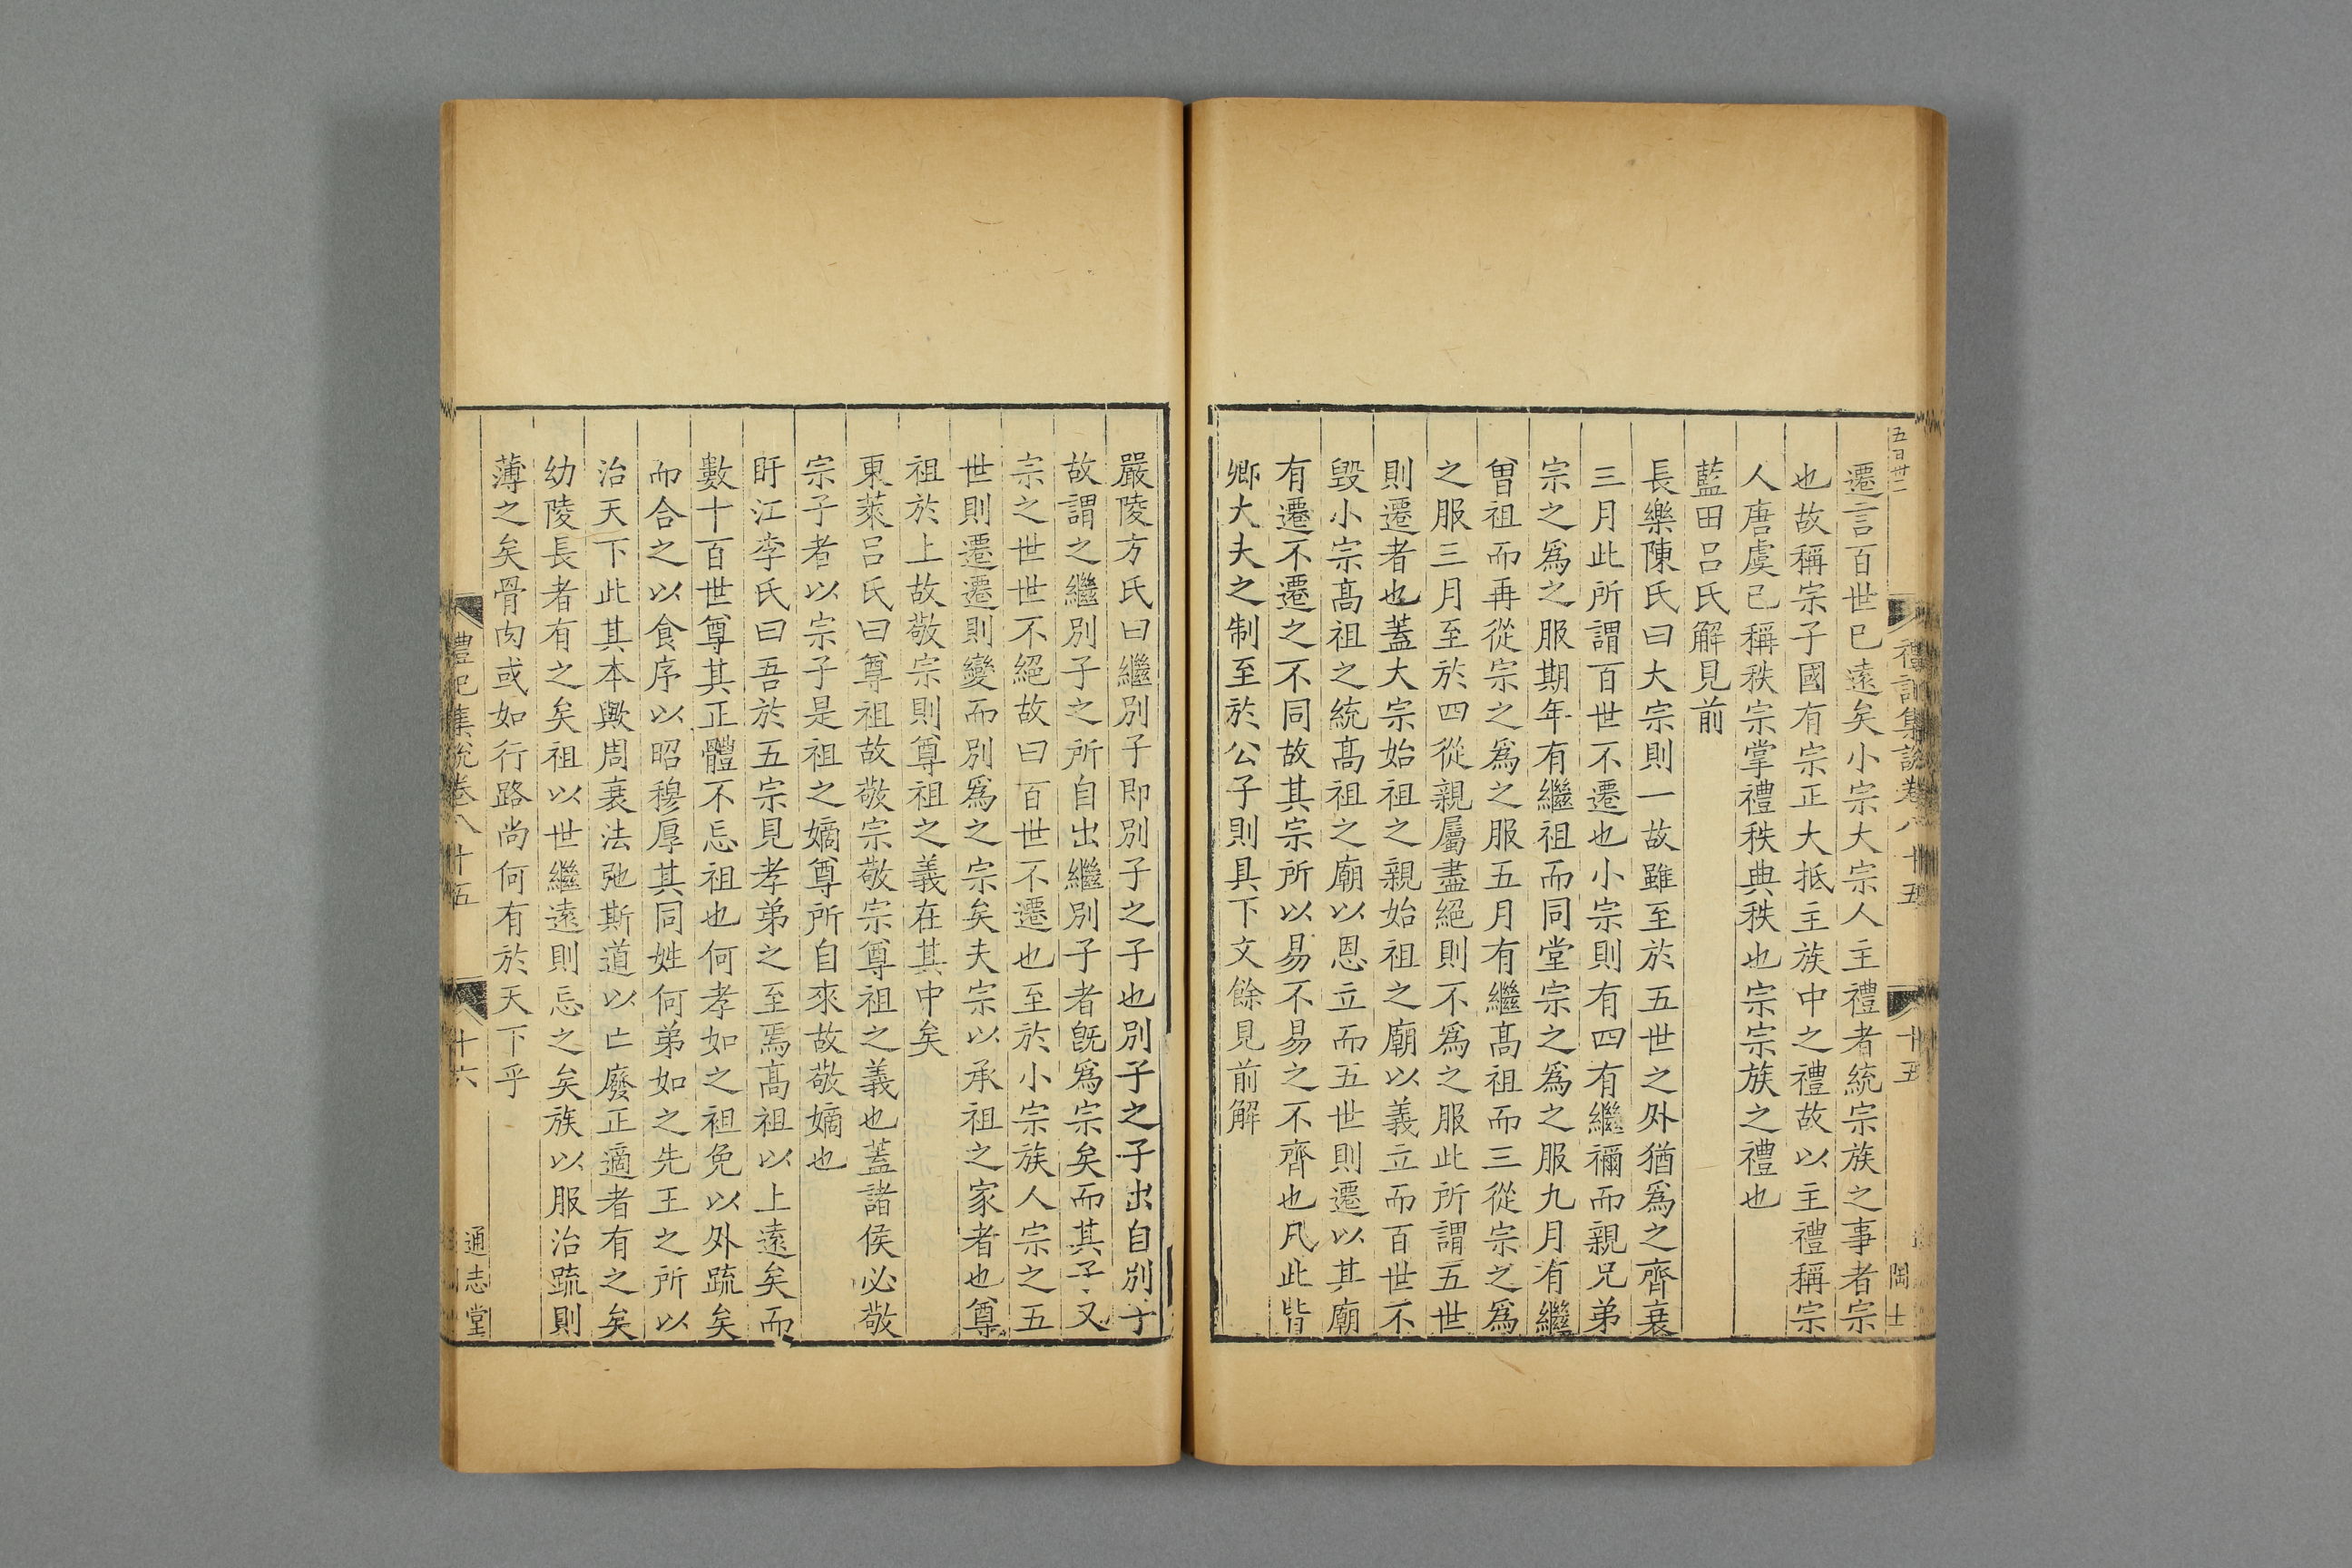 五百卅二
禮記集說卷八十五
十五
遷言百世已遠矣小宗大宗人主禮者統宗族之事者宗
也故稱宗子國有宗正大抵主族中之禮故以主禮稱宗
人唐虞已稱秩宗掌禮秩典秩也宗宗族之禮也
藍田呂氏解見前
長樂陳氏曰大宗則一故雖至於五世之外猶爲之齊衰
三月此所謂百世不遷也小宗則有四有繼禰而親兄弟
宗之爲之服期年有繼祖而同堂宗之爲之服九月有繼
曾祖而再從宗之爲之服五月有繼髙祖而三從宗之爲
之服三月至於四從親屬盡絕則不爲之服此所謂五世
則遷者也蓋大宗始祖之親始祖之廟以義立而百世不
毀小宗髙祖之統髙祖之廟以恩立而五世則遷以其廟
有遷不遷之不同故其宗所以易不易之不齊也凡此皆
卿大夫之制至於公子則具下文餘見前解
嚴陵方氏曰繼別子即別子之子也別子之子出自別子
故謂之繼別子之所自出繼別子者旣爲宗矣而其子又
宗之世世不絕故曰百世不遷也至於小宗族人宗之五
世則遷遷則變而別爲之宗矣夫宗以承祖之家者也尊
祖於上故敬宗則尊祖之義在其中矣
東萊呂氏曰尊祖故敬宗敬宗尊祖之義也蓋諸侯必敬
宗子者以宗子是祖之嫡尊所自來故敬嫡也
盱江李氏曰吾於五宗見孝弟之至焉髙祖以上遠矣而
數十百世尊其正體不忘祖也何孝如之袒免以外疏矣
而合之以食序以昭穆厚其同姓何弟如之先王之所以
治天下此其本歟周衰法弛斯道以亡廢正適者有之矣
幼陵長者有之矣祖以世繼遠則忘之矣族以服治疏則
薄之矣骨肉或如行路尚何有於天下乎
禮記集說卷八十五
十六
通志堂